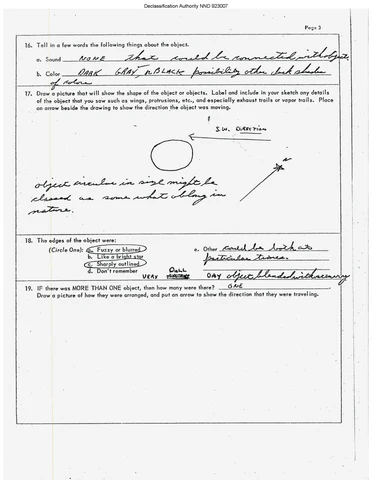 Declassification Authority NND 923007
Page 3
16. Tell in a few words the following things about the object.
a. Sound NONE that could be connected with object.
b. Color DARK GRAY, or BLACK possibility other dark shades
of colors
17. Draw a picture that will show the shape of the object or objects. Label and include in your sketch any details
of the object that you saw such as wings, protrusions, etc., and especially exhaust trails or vapor trails. Place
an arrow beside the drawing to show the direction the object was moving.
S.W. DIRECTION
N
object circular in size might be
classed as some what oblong in
nature.
18. The edges of the object were:
(Circle One): a. Fuzzy or blurred
b. Like a bright star
c. Sharply outlined
d. Don't remember
e. Other could be both at
particular times.
VERY DULL DAY object blended with scenery
19. IF there was MORE THAN ONE object, then how many were there? ONE
Draw a picture of how they were arranged, and put an arrow to show the direction that they were traveling.